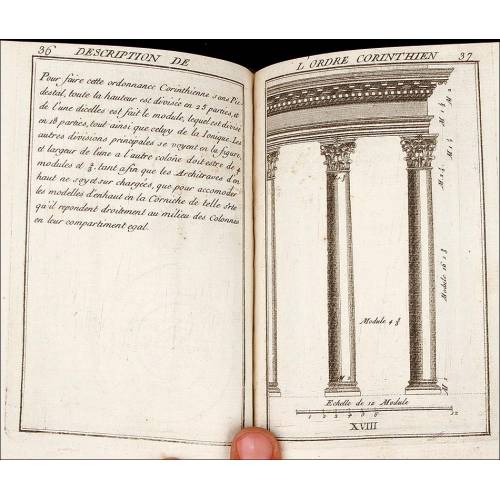 36 DESCRIPTION DE
Pour faire cette ordonnance Corinthienne sans Pie
destal, toute la hauteur est divisée en 25 parties, et
de l'une dicelles est fait le module, lequel est divisé
en 18 parties, tout ainsi que celuy de la Ionique. Les
autres divisions principales se voyent en la figure,
et largeur de l'une a l'autre colone doit estre de 4
modules et ⅔. tant afin que les Architraves d'en
haut ne soyēt sur chargées, que pour accomoder
les modelles d'enhaut en la Corniche de telle sôrte
qu'il repondent droitement au milieu des Colonnes
en leur compartiment egal.
L ORDRE CORINTHIEN 37
M 2
Module 16 ⅔
Module 4 ⅔
M 2
M 1
Echelle de 12 Module
1 2 3 4 5 6 12
XVIII